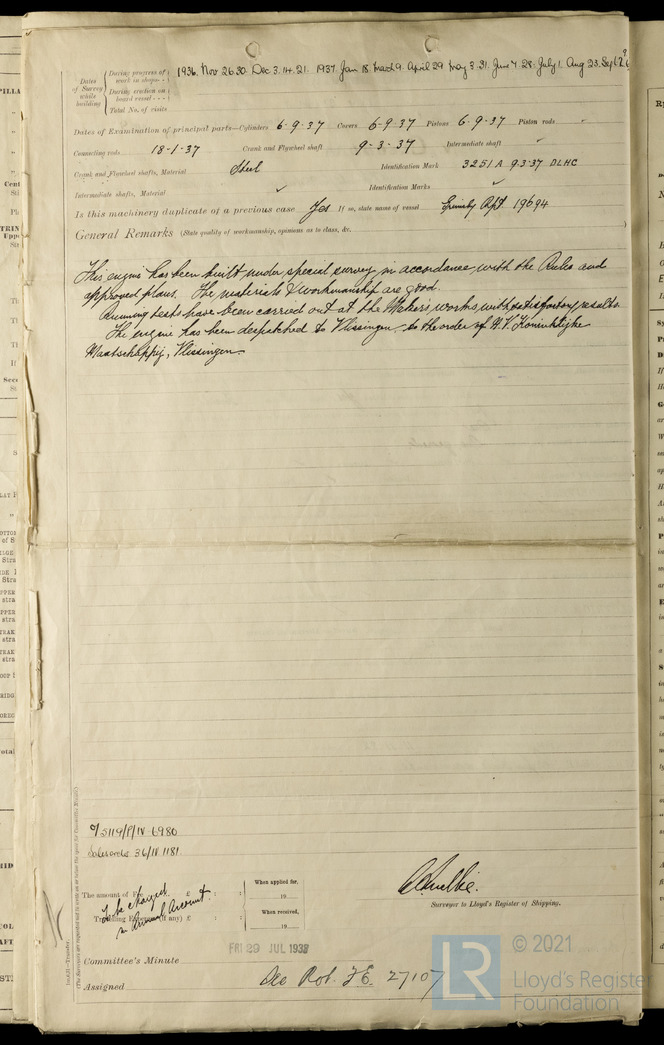 Dates of Survey while building
During progress of work in shops - -
During erection on board vessel - - -
Total No. of visits
1936. Nov 26. 30. Dec 3. 14. 21. 1937. Jan 18. March 9. April 29 May 3. 31. June 7. 28. July 1. Aug 23. Sept
Dates of Examination of principal parts—Cylinders 6-9-37 Covers 6-9-37 Pistons 6-9-37 Piston rods
Connecting rods 18-1-37 Crank and Flywheel shaft 9-3-37 Intermediate shaft
Crank and Flywheel shafts, Material Steel Identification Mark 3251A 9.3.37 DLHC
Intermediate shafts, Material ✓ Identification Marks ✓
Is this machinery duplicate of a previous case Yes If so, state name of vessel Rpt 19694
General Remarks (State quality of workmanship, opinions as to class, &c. )
This engine has been built under special survey in accordance with the Rules and
approved plans. The materials & workmanship are good.
Running tests have been carried out at the Makers works, with satisfactory results.
The engine has been despatched to Vlissingen to the order of N.V. Koninklijke
Maatschappij, Vlissingen.
6980
Salesorder 36/IV 1181.
The amount of Fee £ : : When applied for,
To be charged in Annual Account.
19
Travelling Expenses (if any) £ : : When received,
19
Surveyor to Lloyd's Register of Shipping.
Committee's Minute
Assigned See Rot. J.E. 27107
LR
© 2021
Lloyd's Register
Foundation